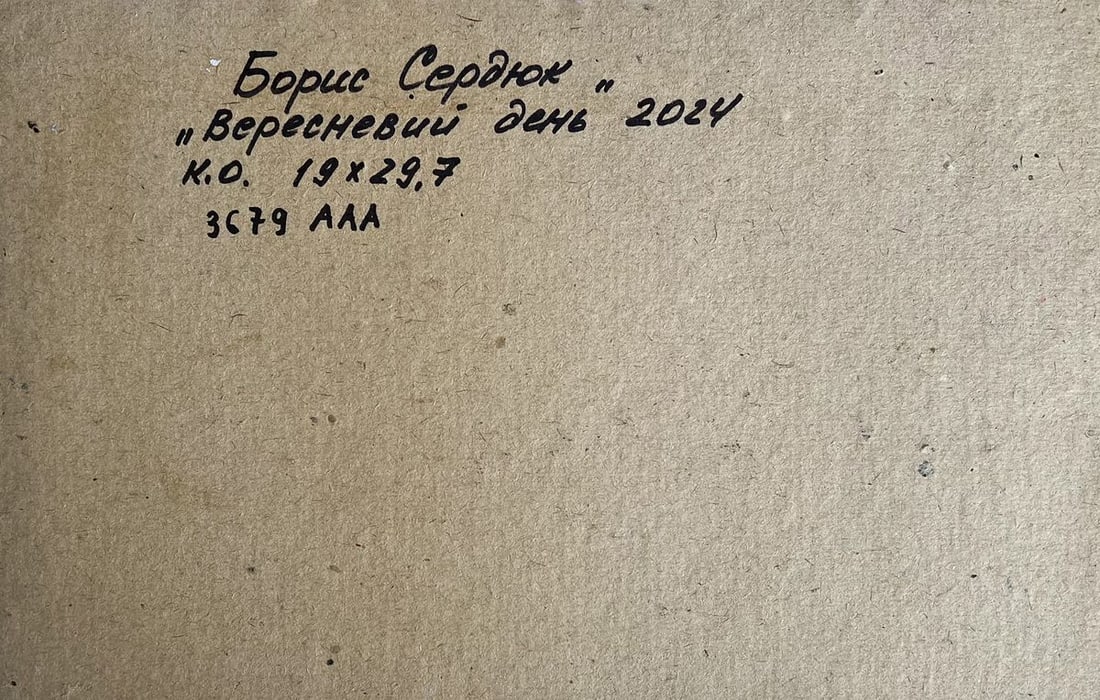 Борис Сердюк
„Вересневий день" 2024
К.О. 19х29,7
3679 ААА